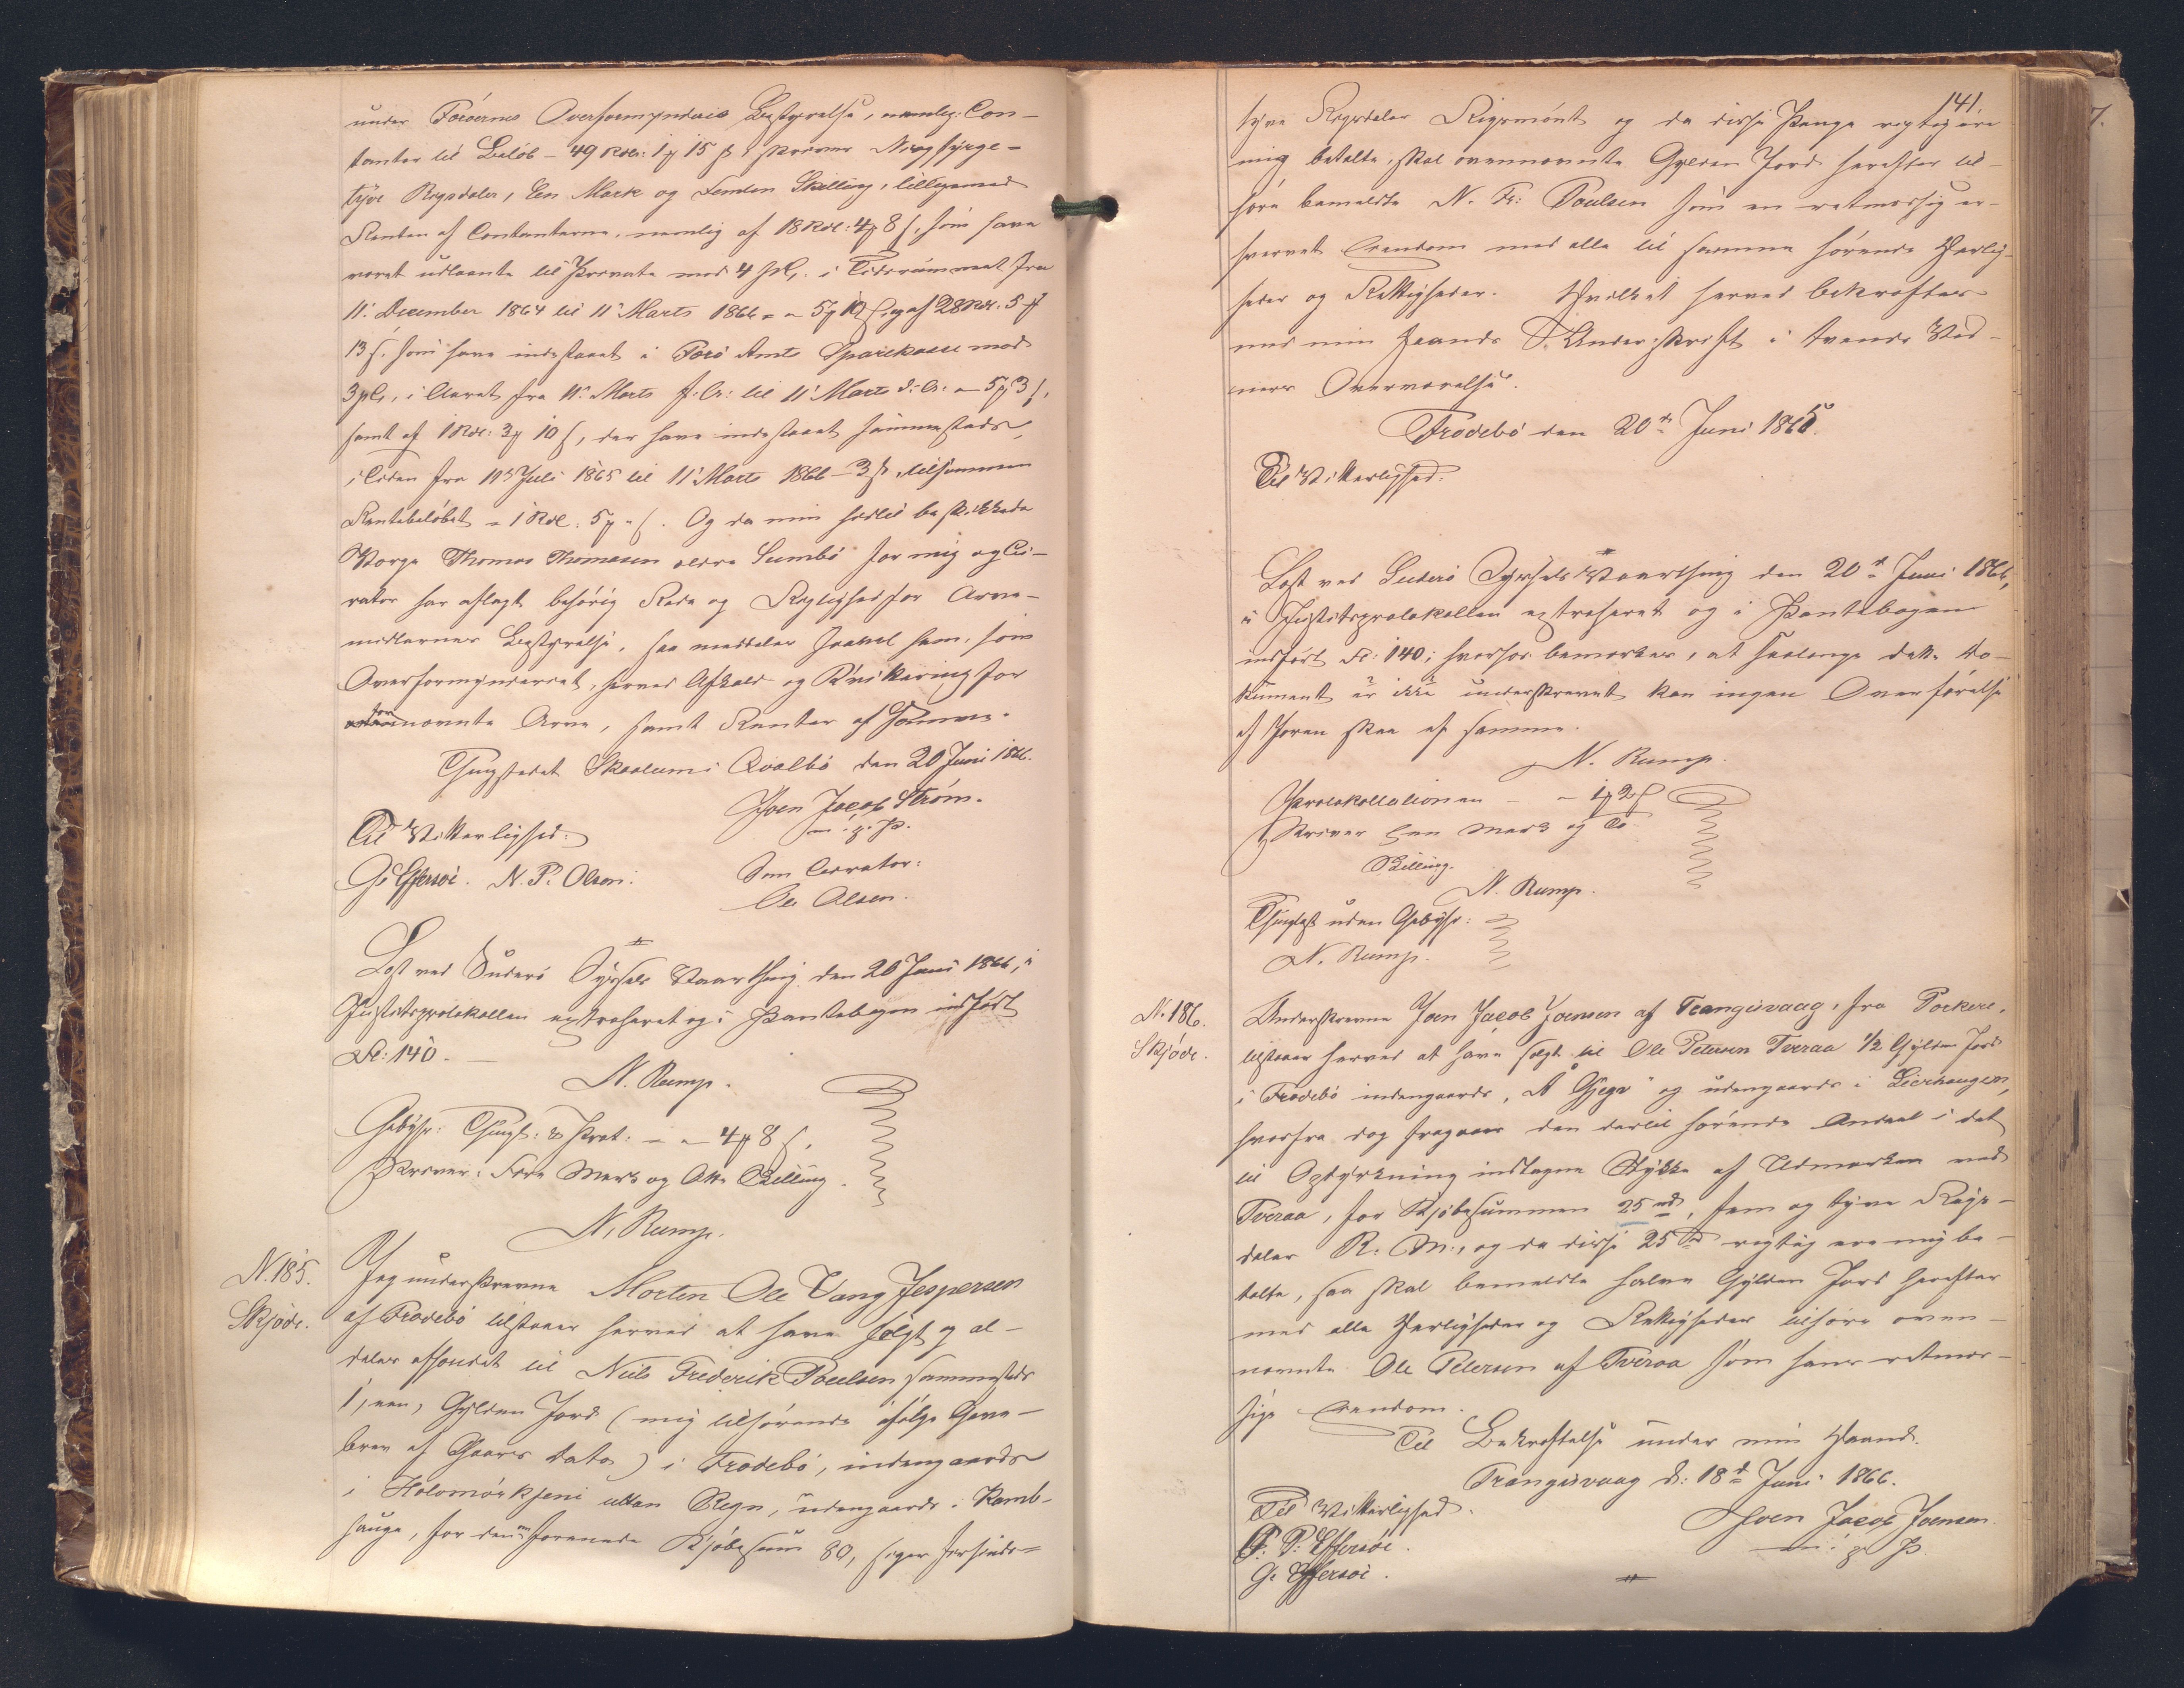 under Færøernes Overformynderis Bestyrelse, nemlig: Con-
tanter til Beløb - 49 Rdl: 1 ꝥ 15 ß, skriver Niogfyrge-
tyve Rigsdaler, Een Mark og Femten Skilling, tilligemed
Renten af Contanterne, nemlig af 18 Rdl: 4 ꝥ 8 ß, som have
været udlaante til Private mod 4 pCt, i Tidsrummet fra
11' December 1864 til 11' Marts 1866 = - 5 ꝥ 10 ß, og af 28 Rdl: 5 ꝥ
13 ß, som have indestaaet i Færø Amts Sparekasse mod
3 pCt, i Aaret fra 11' Marts f: A: til 11' Marts d: A: - 5 ꝥ 3 ß,
samt af 1 Rdl: 3 ꝥ 10 ß, der have indestaaet sammesteds
i Tiden fra 11' Juli 1865 til 11' Marts 1866 - 3 ß, tilsammen
Rentebeløbet - 1 Rdl: 5 ꝥ - ß. Og da min hidtil beskikkede
Værge Thomas Thomasen ældre Sumbø for mig og Cu-
rator har aflagt behørig Rede og Rigtighed for Arve-
midlernes Bestyrelse, saa meddeles Saavel ham, som
Overformynderiet, herved Afkald og Qvittering for
nævnte Arv, samt Renter af Samme.
Thingstedet Skaalum i Qvalbø den 20 Juni 1866.
Joen Jacob Strøm.
m. p. P.
Til Vitterlighed:
G. Effersøe. N. P. Olsen.
Som Curator:
Ole Olsen.
Læst ved Suderø Syssels Vaarthing den 20 Juni 1866, i
Justitsprotokollen extraheret og i Pantebogen indført
Fol: 140.
N. Rump.
Gebyhr: Thingl: & Prot: - - 4 ꝥ 8 ß.
Skriver: Fire Mark og Otte Skilling.
N. Rump.
N. 185.
Skjøde.
Jeg underskrevne Morten Ole Vang Jespersen
af Frodebø tilstaaer herved at have solgt og al-
deles afhændet til Niels Frederik Poulsen sammesteds
1, een, Gylden Jord (mig tilhørende ifølge Gave-
brev af Gaars Dato) i Frodebø, indengaards
i Holomørkjeni uttan Regn, udengaards i Kamb-
hauge, for den forenede Kjøbesum 80, siger firsinds-
141.
tyve Rigsdaler Rigsmønt og da disse Penge rigtig ere
mig betalte, skal ovennævnte Gylden Jord herefter til-
høre bemeldte N. Fr: Poulsen som en retmæssig er-
hvervet Eiendom med alle til samme hørende Herlig-
heder og Rettigheder. Hvilket herved bekræftes
med min Haands Underskrift i tvende Vid-
ners Overværelse.
Frodebø den 20de Juni 1865.
Til Vitterlighed.
Læst ved Suderø Syssels Vaarthing den 20de Juni 1866,
i Justitsprotokollen extraheret og i Pantebogen
indført Fol: 140; hvorhos bemærkes, at saalænge dette Do-
kument er ikke underskrevet kan ingen Overførelse
af Jorden skee af samme.
N. Rump.
Protokollationen - - 1 ꝥ 2 ß
Skriver Een Mark og To
Skilling.
N. Rump.
Thinglæst uden Gebyhr:
N. Rump.
N. 186.
Skjøde.
Underskrevne Joen Jacob Joensen af Trangisvaag, fra Porkere,
tilstaaer herved at have solgt til Ole Petersen Tveraa 1/2 Gylden Jord
i Frodebø indengaards, "Å Gjegv" og udengaards i Lierhaugen,
hvorfra dog fragaaer den dertil hørende Andeel i det
til Opdyrkning indtagne Stykke af Udmarken ved
Tveraa, for Kjøbesummen 25 rd, fem og tyve Rigs-
daler R: M:, og da disse 25 rd rigtig ere mig be-
talte, saa skal bemeldte halve Gylden Jord herefter
med alle Herligheder og Rettigheder tilhøre oven-
nævnte Ole Petersen af Tveraa som hans retmæs-
sige Eiendom.
Til Bekræftelse under min Haand.
Trangisvaag d: 18de Juni 1866.
Joen Jacob Joensen.
m. p. P.
Til Vitterlighed.
P. Effersøe.
G. Effersøe.